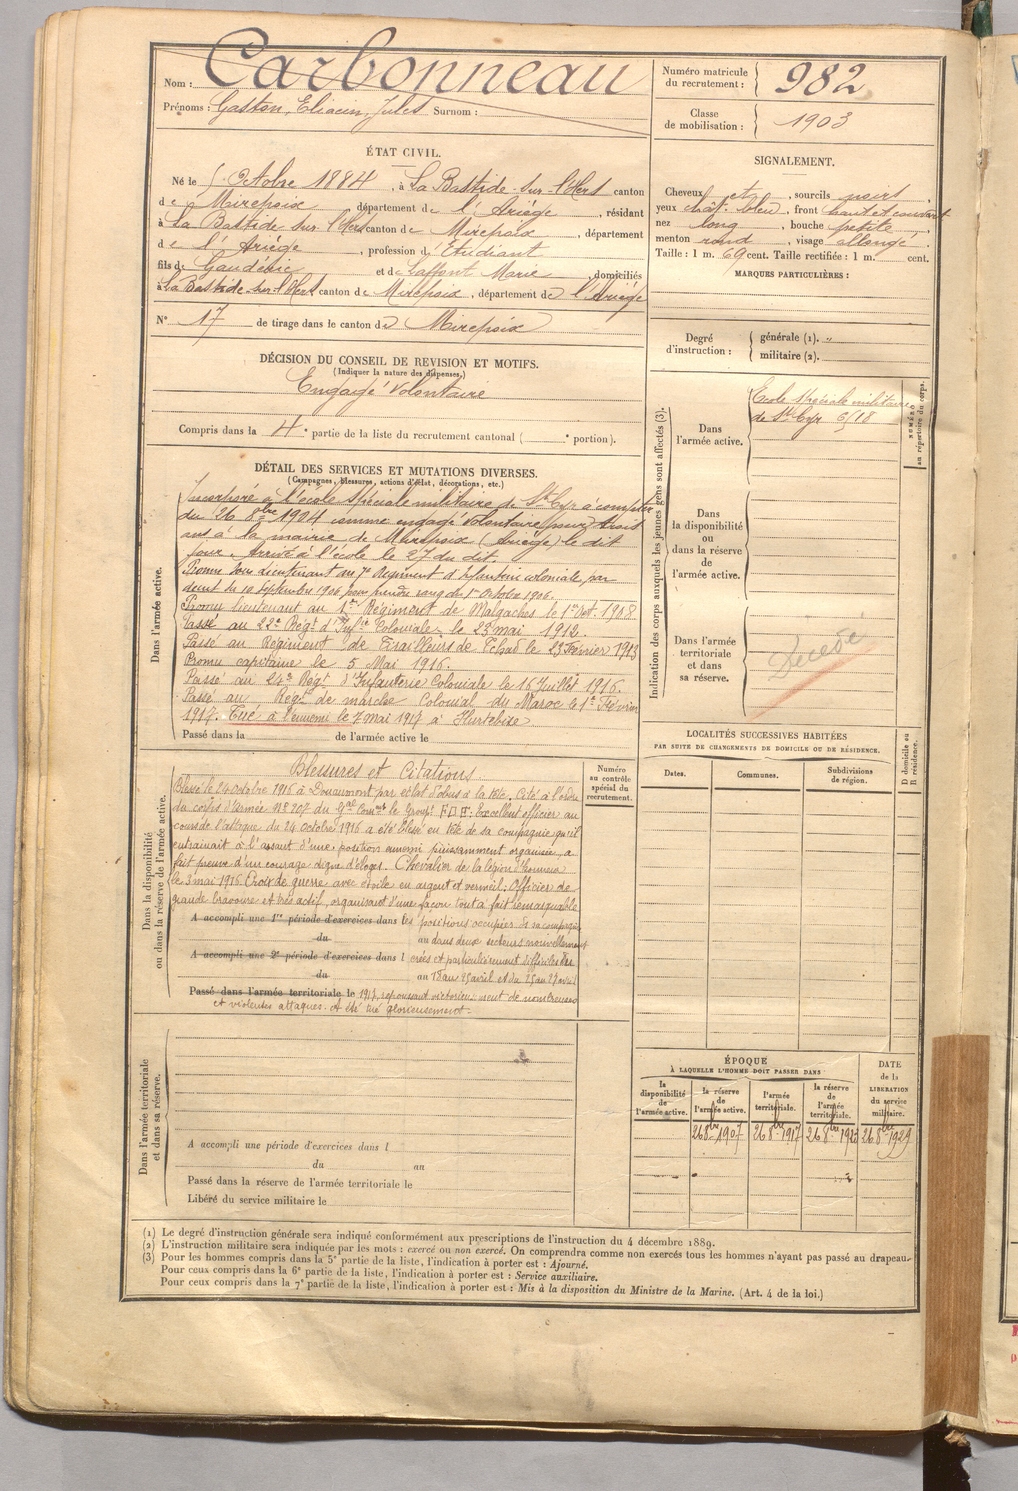 Nom : Carbonneau
Prénoms : Gaston, Eliacin, Jules Surnom :
Numéro matricule du recrutement : 982
Classe de mobilisation : 1903
ÉTAT CIVIL.
Né le 5 Octobre 1884, à La Bastide-sur-l'Hers canton
de Mirepoix, département de l'Ariège, résidant
à La Bastide sur l'Hers canton de Mirepoix, département
de l'Ariège, profession d'Etudiant
fils de Gaudéric et de Laffont Marie, domiciliés
à La Bastide-sur-l'Hers canton de Mirepoix, département de l'Ariège
N° 17 de tirage dans le canton de Mirepoix
SIGNALEMENT.
Cheveux et, sourcils noirs,
yeux chât. bleu, front haut et couvert
nez long, bouche petite,
menton rond, visage allongé.
Taille : 1 m. 69 cent. Taille rectifiée : 1 m. cent.
MARQUES PARTICULIÈRES :
Degré d'instruction : générale (1). "
militaire (2).
DÉCISION DU CONSEIL DE REVISION ET MOTIFS.
(Indiquer la nature des dispenses,)
Engagé Volontaire
Compris dans la 4e partie de la liste du recrutement cantonal ( e portion).
DÉTAIL DES SERVICES ET MUTATIONS DIVERSES.
(Campagnes, blessures, actions d'éclat, décorations, etc.)
Dans l'armée active.
Incorporé à l'école spéciale militaire de St Cyr à compter
du 26 8bre 1904 comme engagé volontaire pour trois
ans à la mairie de Mirepoix (Ariège) le dit
jour. Arrivé à l'école le 27 du dit.
Promu Sous Lieutenant au 7e Régiment d'Infanterie coloniale par
décret du 10 Septembre 1906 pour prendre rang du 1er Octobre 1906.
Promu lieutenant au 1er Régiment de Malgaches le 1er oct. 1908
Passé au 22e Régt d'Infie Coloniale le 23 mai 1912.
Passé au Régiment de Tirailleurs de Tchad le 23 Février 1913
Promu capitaine le 5 Mai 1916.
Passé au 24e Régt d'Infanterie Coloniale le 16 Juillet 1916.
Passé au Régt de marche Colonial du Maroc le 1er Février
1917. Tué à l'ennemi le 7 mai 1917 à Hurtebise
Passé dans la de l'armée active le
Indication des corps auxquels les jeunes gens sont affectés (3).
NUMÉRO au répertoire du corps.
Dans l'armée active.
Ecole Spéciale militaire
de St Cyr 6/18
Dans la disponibilité ou dans la réserve de l'armée active.
Dans l'armée territoriale et dans sa réserve.
Décédé
LOCALITÉS SUCCESSIVES HABITÉES
PAR SUITE DE CHANGEMENTS DE DOMICILE OU DE RÉSIDENCE.
Dates. Communes. Subdivisions de région. D domicile ou R résidence.
Dans la disponibilité ou dans la réserve de l'armée active.
Numéro au contrôle spécial du recrutement.
Blessures et Citations.
Blessé le 24 octobre 1916 à Douaumont par éclat d'obus à la tête. Cité à l'ordre
du corps d'armée N° 207 du Gal Comt le Groupt F D E : Excellent officier au
cours de l'attaque du 24 octobre 1916 a été blessé en tête de sa compagnie qu'il
entrainait à l'assaut d'une position ennemi puissamment organisée, a
fait preuve d'un courage digne d'éloges. Chevalier de la légion d'honneur
le 3 mai 1916. Croix de guerre avec étoile en argent et vermeil : Officier de
grande bravoure et très actif, organisant d'une façon tout à fait remarquable
A accompli une 1re période d'exercices dans les positions occupées de sa compagnie
du au dans deux secteurs nouvellement
A accompli une 2e période d'exercices dans l créés et particulièrement difficiles du
du au 18 au 25 avril et du 25 au 27 avril
Passé dans l'armée territoriale le 1917, repoussant victorieusement de nombreuses
et violentes attaques. A été tué glorieusement.
Dans l'armée territoriale et dans sa réserve.
A accompli une période d'exercices dans l
du au
Passé dans la réserve de l'armée territoriale le
Libéré du service militaire le
ÉPOQUE
À LAQUELLE L'HOMME DOIT PASSER DANS
la disponibilité de l'armée active. la réserve de l'armée active. l'armée territoriale. la réserve de l'armée territoriale. DATE de la LIBÉRATION du service militaire.
26 8bre 1907 26 8bre 1917 26 8bre 1923 26 8bre 1929
(1) Le degré d'instruction générale sera indiqué conformément aux prescriptions de l'instruction du 4 décembre 1889.
(2) L'instruction militaire sera indiquée par les mots : exercé ou non exercé. On comprendra comme non exercés tous les hommes n'ayant pas passé au drapeau.
(3) Pour les hommes compris dans la 5e partie de la liste, l'indication à porter est : Ajourné.
Pour ceux compris dans la 6e partie de la liste, l'indication à porter est : Service auxiliaire.
Pour ceux compris dans la 7e partie de la liste, l'indication à porter est : Mis à la disposition du Ministre de la Marine. (Art. 4 de la loi.)